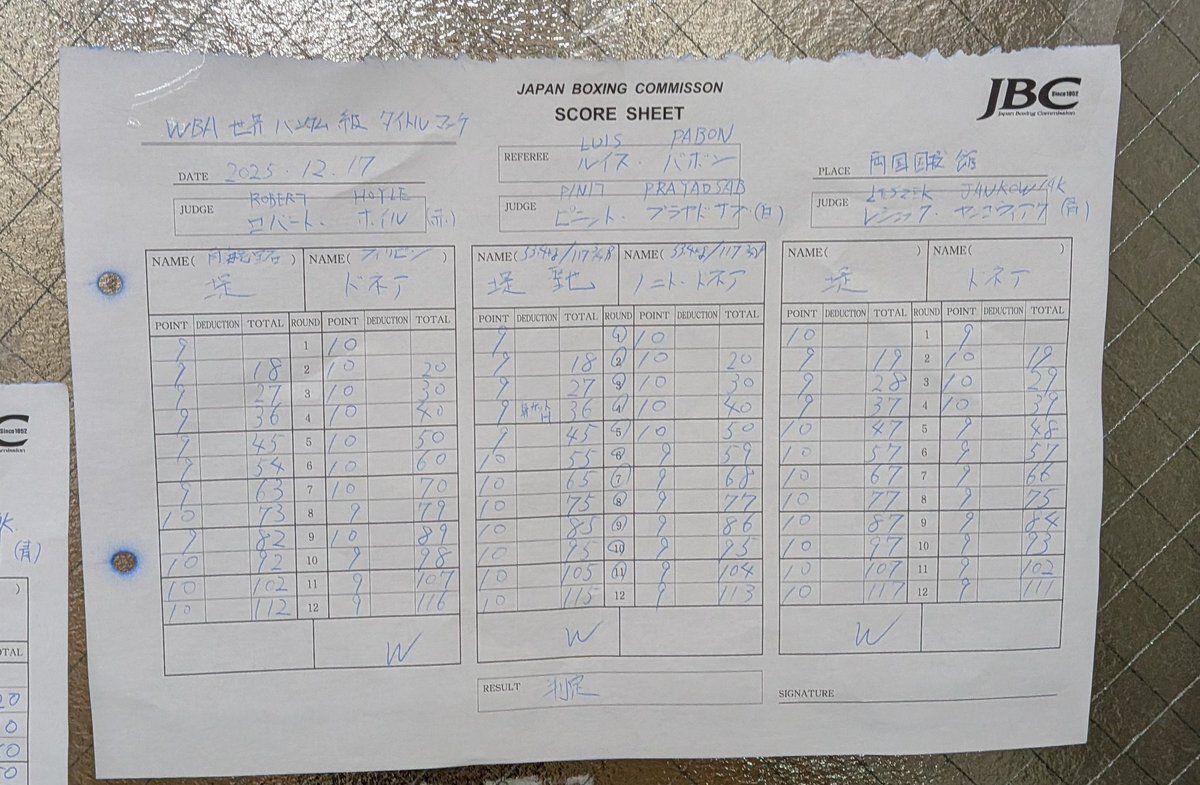 JAPAN BOXING COMMISSON
SCORE SHEET
JBC
Since1952
Japan Boxing Commission
WBA 世界 バンタム 級 タイトルマッチ
DATE 2025.12.17
REFEREE LUIS PABON
ルイス・パボン
PLACE 両国国技館
JUDGE ROBERT HOYLE
ロバート・ホイル (赤)
JUDGE PINIT PRAYADSAB
ピニット・プラヤドサブ (白)
JUDGE LESZEK JANKOWIAK
レシェック・ヤンコヴィアク (青)
NAME( ) NAME( フィリピン ) NAME( ) NAME( ) NAME( ) NAME( )
堤 ドネア 堤 聖也 ノニト・ドネア 堤 ドネア
POINT DEDUCTION TOTAL ROUND POINT DEDUCTION TOTAL POINT DEDUCTION TOTAL ROUND POINT DEDUCTION TOTAL POINT DEDUCTION TOTAL ROUND POINT DEDUCTION TOTAL
9 1 10 9 1 10 10 1 9
9 18 2 10 20 9 18 2 10 20 9 19 2 10 19
9 27 3 10 30 9 27 3 10 30 9 28 3 10 29
9 36 4 10 40 9 36 4 10 40 9 37 4 10 39
9 45 5 10 50 9 45 5 10 50 10 47 5 9 48
9 54 6 10 60 10 55 6 9 59 10 57 6 9 57
9 63 7 10 70 10 65 7 9 68 10 67 7 9 66
10 73 8 9 79 10 75 8 9 77 10 77 8 9 75
9 82 9 10 89 10 85 9 9 86 10 87 9 9 84
10 92 10 9 98 10 95 10 9 95 10 97 10 9 93
10 102 11 9 107 10 105 11 9 104 10 107 11 9 102
10 112 12 9 116 10 115 12 9 113 10 117 12 9 111
W W W
RESULT 判定
SIGNATURE
Since1952
(青)
)
OTAL
20